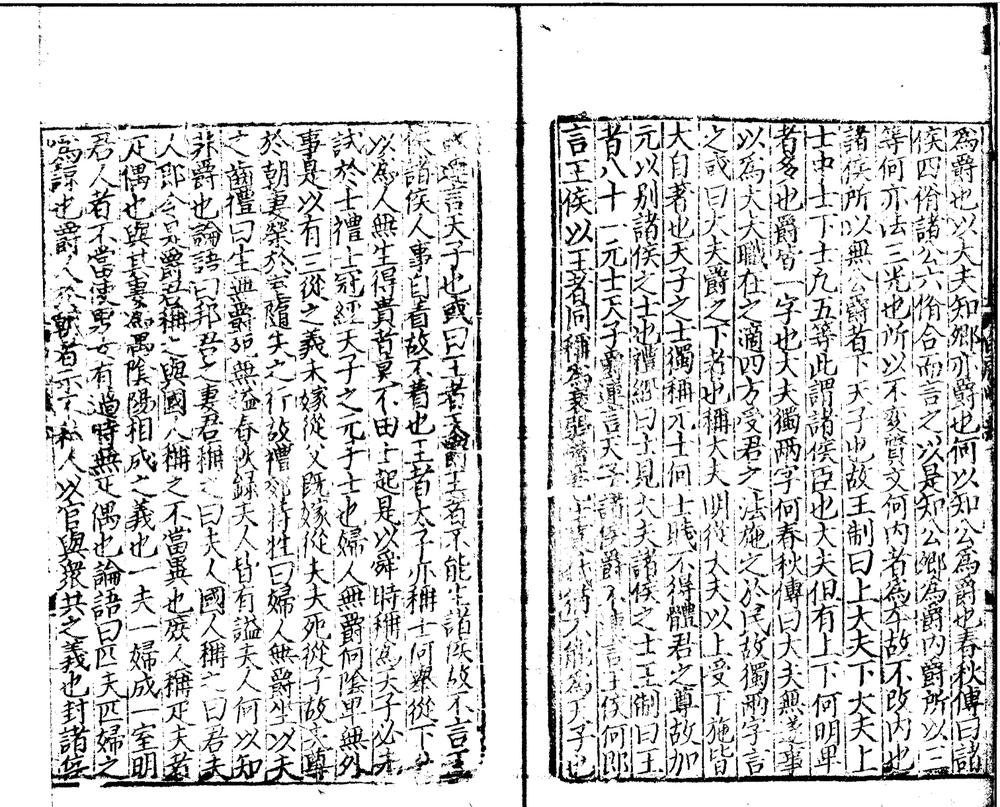 為爵也以大夫知卿亦爵也何以知公為爵也春秋傳曰諸
侯四佾諸公六佾合而言之以是知公卿為爵內爵所以三
等何亦法三光也所以不變質文何內者為本故不改內也
諸侯所以無公爵者下天子也故王制曰上大夫下大夫上
士中士下士凡五等此謂諸侯臣也大夫但有上下何明卑
者多也爵皆一字也大夫獨兩字何春秋傳曰大夫無遂事
以為大夫職在之適四方受君之法施之於民故獨兩字言
之或曰大夫爵之下者也稱大夫明從大夫以上受下施皆
大自著也天子之士獨稱元士何士賤不得體君之尊故加
元以別諸侯之士也禮經曰士見大夫諸侯之士王制曰王
者八十一元士天子爵連言天子諸侯爵不連言王侯何即
言王侯以王者同稱為衰弱
不能為天子也
連言天子也或曰王者天爵王者不能生諸侯故不言王
侯諸侯人事自著故不著也王者太子亦稱士何舉從下升
以為人無生得貴者莫不由士起是以舜時稱為天子必先
試於士禮士冠經天子之元子士也婦人無爵何陰卑無外
事是以有三從之義未嫁從父既嫁從夫夫死從子故夫尊
於朝妻榮於室隨夫之行故禮郊特牲曰婦人無爵坐以夫
之齒禮曰生無爵死無諡春秋錄夫人皆有諡夫人何以知
非爵也論語曰邦君之妻君稱之曰夫人國人稱之曰君夫
人即令是爵君稱之與國人稱之不當異也庶人稱疋夫者
疋偶也與其妻為偶陰陽相成之義也一夫一婦成一室明
君人者不當使男女有過時無疋偶也論語曰匹夫匹婦之
為諒也爵人於朝者示不私人以官與眾共之義也封諸侯